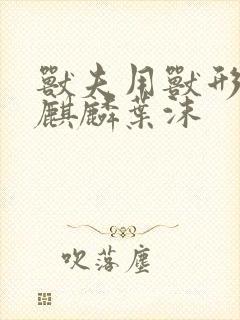 獸夫用獸形
麒麟葉沫
吹落塵